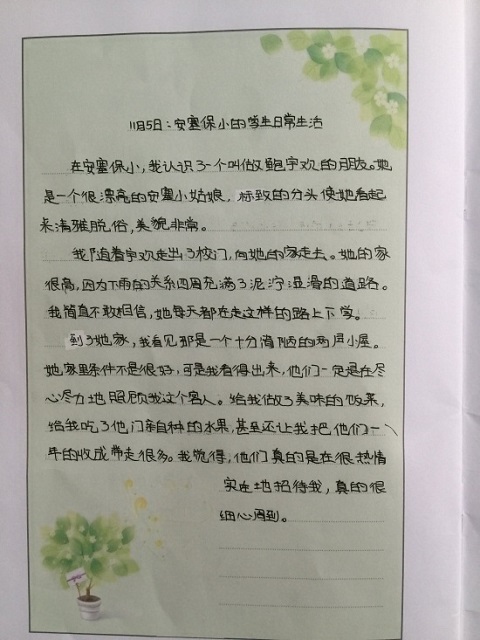 11月5日：安塞保小的学生日常生活
在安塞保小，我认识了一个叫做鲍宇欢的朋友。她
是一个很漂亮的安塞小姑娘，标致的分头使她看起
来清雅脱俗，美貌非常。
我随着宇欢走出了校门，向她的家走去。她的家
很高，因为下雨的关系四周充满了泥泞湿滑的道路。
我简直不敢相信，她每天都在走这样的路上下学。
到了她家，我看见那是一个十分简陋的两层小屋。
她家里条件不是很好，可是我看得出来，他们一定是在尽
心尽力地照顾我这个客人。给我做了美味的饭菜，
给我吃了他们亲自种的水果，甚至还让我把他们一
年的收成带走很多。我觉得，他们真的是在很热情
实在地招待我，真的很
细心周到。